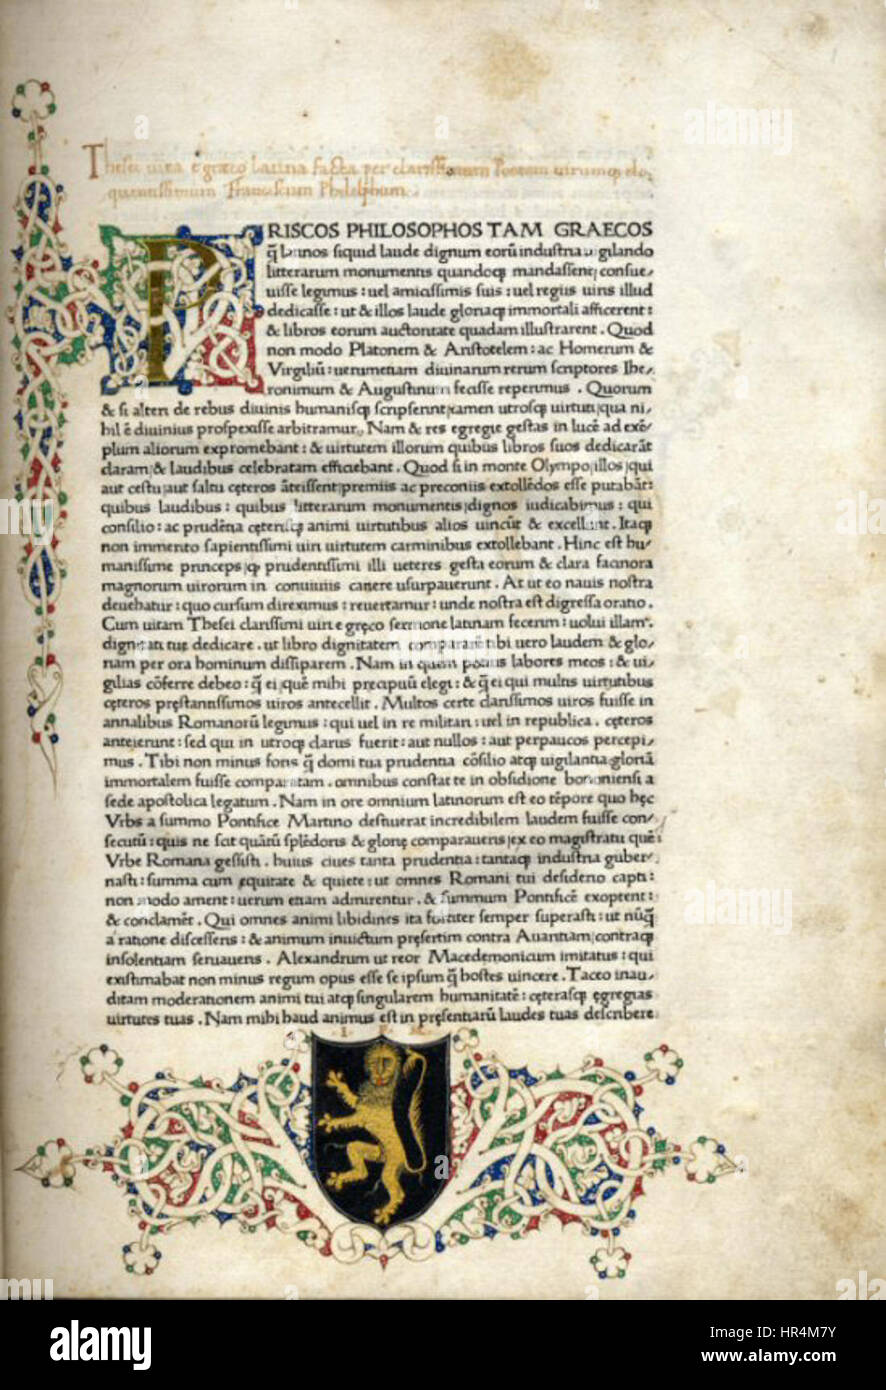 Thesei uita e græco latina facta per clarissimum Poetam uirumq; elo,
quentissimum Franciscum Philelphum.
PRISCOS PHILOSOPHOS TAM GRAECOS
q̃ latinos siquid laude dignum eorũ industria uigilando
litterarum monumentis quandoq; mandassent; consue,
uisse legimus: uel amicissimis suis: uel regiis uiris illud
dedicasse: ut & illos laude gloriaq; immortali afficerent:
& libros eorum auctoritate quadam illustrarent. Quod
non modo Platonem & Aristotelem: ac Homerum &
Virgiliũ: uerumetiam diuinarum rerum scriptores Ihe,
ronimum & Augustinum fecisse reperimus. Quorum
& si alteri de rebus diuinis humanisq; scripserint; tamen utrosq; uirtuti; qua ni,
hil ẽ diuinius prospexisse arbitramur. Nam & res egregie gestas in lucẽ ad exẽ,
plum aliorum expromebant: & uirtutem illorum quibus libros suos dedicarãt
claram; & laudibus celebratam efficiebant. Quod si in monte Olympo; illos; qui
aut cestu; aut saltu cęteros ãteissent; premiis ac preconiis extollẽdos esse putabãt:
quibus laudibus: quibus litterarum monumentis; dignos iudicabimus: qui
consilio: ac prudẽtia cęterisq; animi uirtutibus alios uincũt & excellunt. Itaq;
non immerito sapientissimi uiri uirtutem carminibus extollebant. Hinc est hu,
manissime princeps; q; prudentissimi illi ueteres gesta eorum & clara facinora
magnorum uirorum in conuiuiis canere usurpauerunt. At ut eo nauis nostra
deuehatur: quo cursum direximus: reuertamur: unde nostra est digressa oratio.
Cum uitam Thesei clarissimi uiri e gręco sermone latinam fecerim: uolui illam
dignitati tuę dedicare. ut libro dignitatem compararẽ: tibi uero laudem & glo,
riam per ora hominum dissiparem. Nam in quem potius labores meos: & ui,
gilias cõferre debeo: q̃ ei; quẽ mihi precipuũ elegi: & q̃ ei qui multis uirtutibus
cęteros pręstantissimos uiros antecellit. Multos certe clarissimos uiros fuisse in
annalibus Romanorũ legimus: qui uel in re militari: uel in republica. cęteros
anteierunt: sed qui in utroq; clarus fuerit: aut nullos: aut perpaucos percepi,
mus. Tibi non minus foris q̃ domi tua prudentia cõsilio atq; uigilantia gloriã
immortalem fuisse comparatam. omnibus constat te in obsidione bononiensi a
sede apostolica legatum. Nam in ore omnium latinorum est eo tẽpore quo hęc
Vrbs a summo Pontifice Martino desciuerat incredibilem laudem fuisse con,
secutũ: quis ne scit quãtũ splẽdoris & glorię comparaueris; ex eo magistratu quẽ
Vrbe Romana gessisti. huius ciues tanta prudentia: tantaq; industria guber,
nasti: summa cum equitate & quiete: ut omnes Romani tui desiderio capti:
non modo ament: uerum etiam admirentur. & summum Pontificẽ exoptent:
& conclamẽt. Qui omnes animi libidines ita fortiter semper superasti: ut nũq̃
a ratione discesseris: & animum inuictum pręsertim contra Auaritiam; contraq;
insolentiam seruaueris. Alexandrum ut reor Macedemonicum imitatus: qui
existimabat non minus regum opus esse se ipsum q̃ hostes uincere. Taceo inau,
ditam moderationem animi tui atq; singularem humanitatẽ: cęterasq; ęgregias
uirtutes tuas. Nam mihi haud animus est in pręsentiarũ laudes tuas describere
alamy
alamy
alamy
alamy
alamy
alamy
HR4M7Y
www.alamy.com